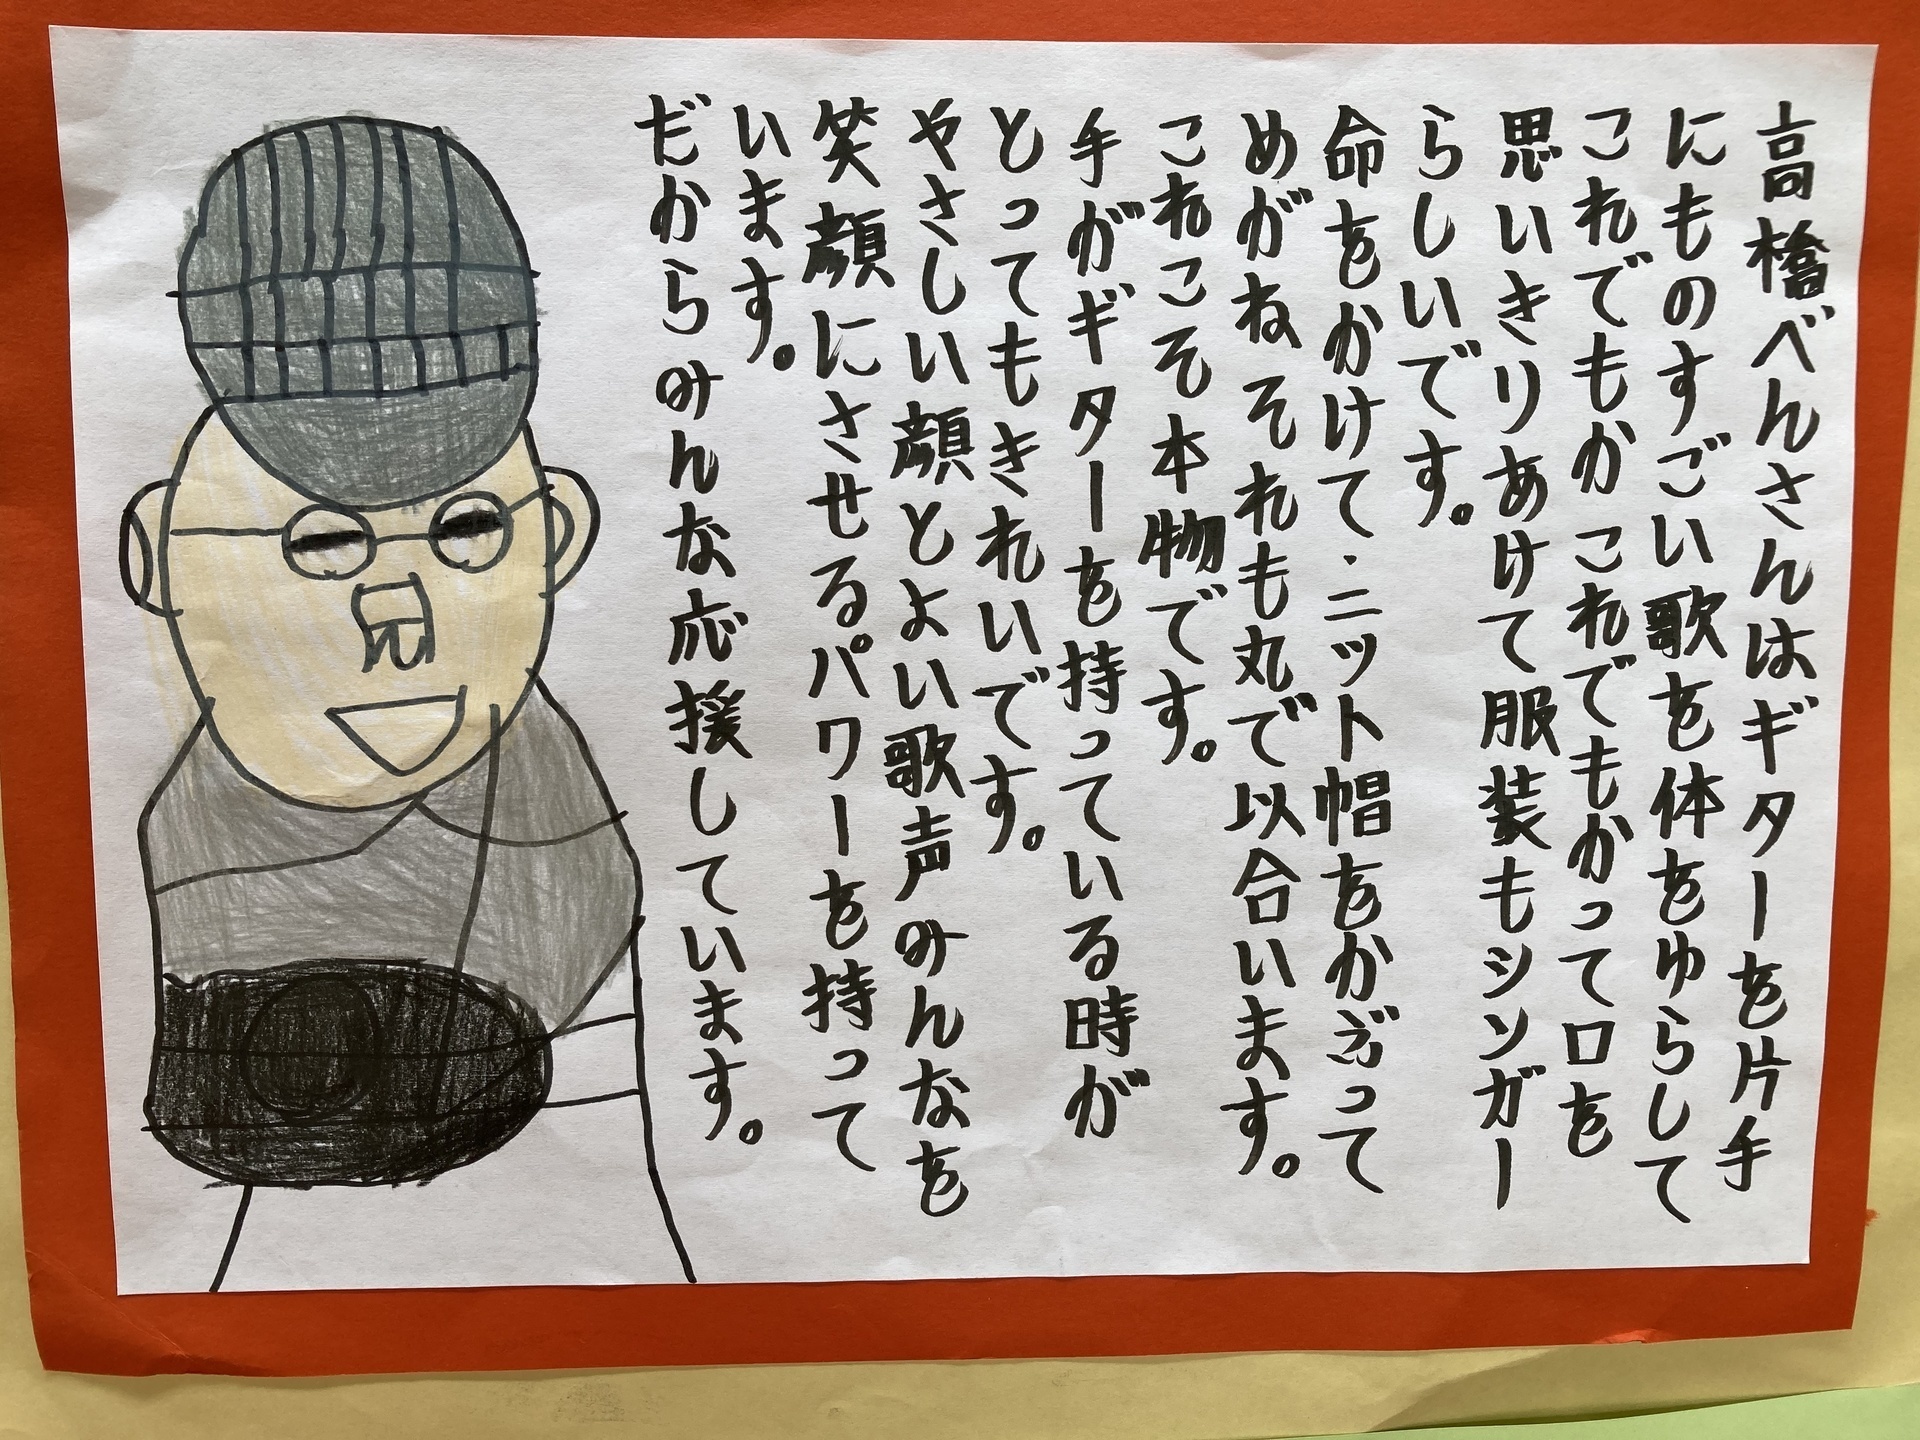 高橋べんさんはギターを片手
にものすごい歌を体をゆらして
これでもかこれでもかって口を
思いきりあけて服装もシンガー
らしいです。
命をかけて・ニット帽をかぶって
めがねそれも丸で以合います。
これこそ本物です。
手がギターを持っている時が
とってもきれいです。
やさしい顔とよい歌声みんなを
笑顔にさせるパワーを持って
います。
だからみんな応援しています。